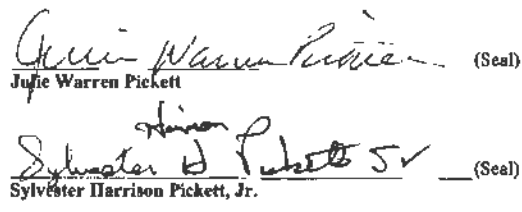 Julie Warren Pickett (Seal)
Julie Warren Pickett
Harrison
Sylvester H Pickett Jr (Seal)
Sylvester Harrison Pickett, Jr.